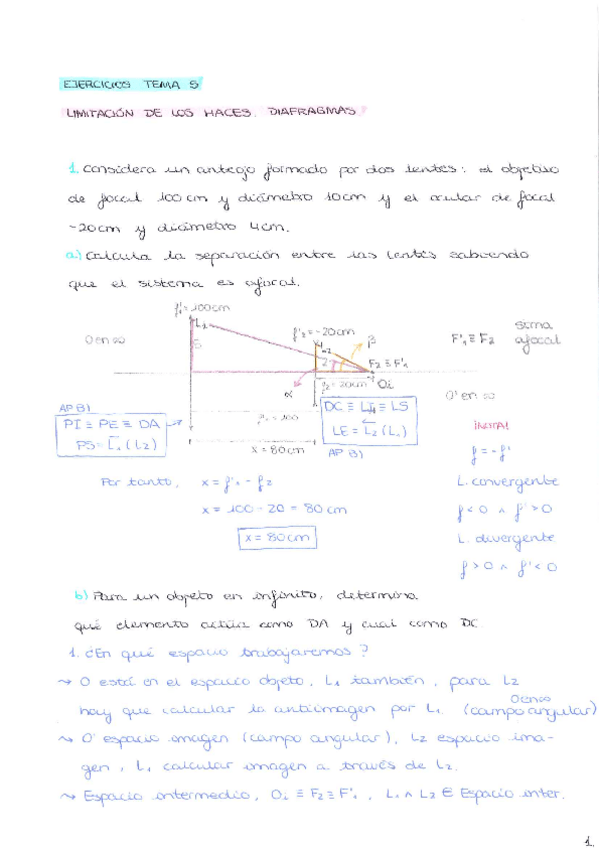 EJERCICIOS TEMA 5
LIMITACIÓN DE LOS HACES. DIAFRAGMAS.
1. Considera un anteojo formado por dos lentes: el objetivo
de focal 100 cm y diámetro 10 cm y el ocular de focal
-20cm y diámetro 4cm.
a) Calcula la separación entre las lentes sabiendo
que el sistema es afocal.
f'₁ = 100cm
L₁
f'₂ = -20cm
β
F'₁ ≡ F₂
sistma
afocal
O en ∞
5
2
F₂ ≡ F'₁
f₂ = 20cm
Oi
α
O' en ∞
AP B)
PI ≡ PE ≡ DA
PS = L₁ (L₂)
f'₁ = 100
DC ≡ LI ≡ LS
LE = L₂ (L₁)
x = 80cm
AP B)
f = -f'
Por tanto, x = f'₁ - f₂
L. convergente
x = 100 - 20 = 80 cm
f < 0 ∧ f' > 0
x = 80cm
L. divergente
f > 0 ∧ f' < 0
b) Para un objeto en infinito, determina
qué elemento actúa como DA y cual como DC
1. ¿En qué espacio trabajaremos?
↝ O está en el espacio objeto, L₁ también, para L₂
O en ∞
hay que calcular la antiimagen por L₁. (campo angular)
↝ O' espacio imagen (campo angular), L₂ espacio ima-
gen, L₁ calcular imagen a través de L₂.
↝ Espacio intermedio, Oi ≡ F₂ ≡ F'₁, L₁ ∧ L₂ ∈ Espacio inter.
1.